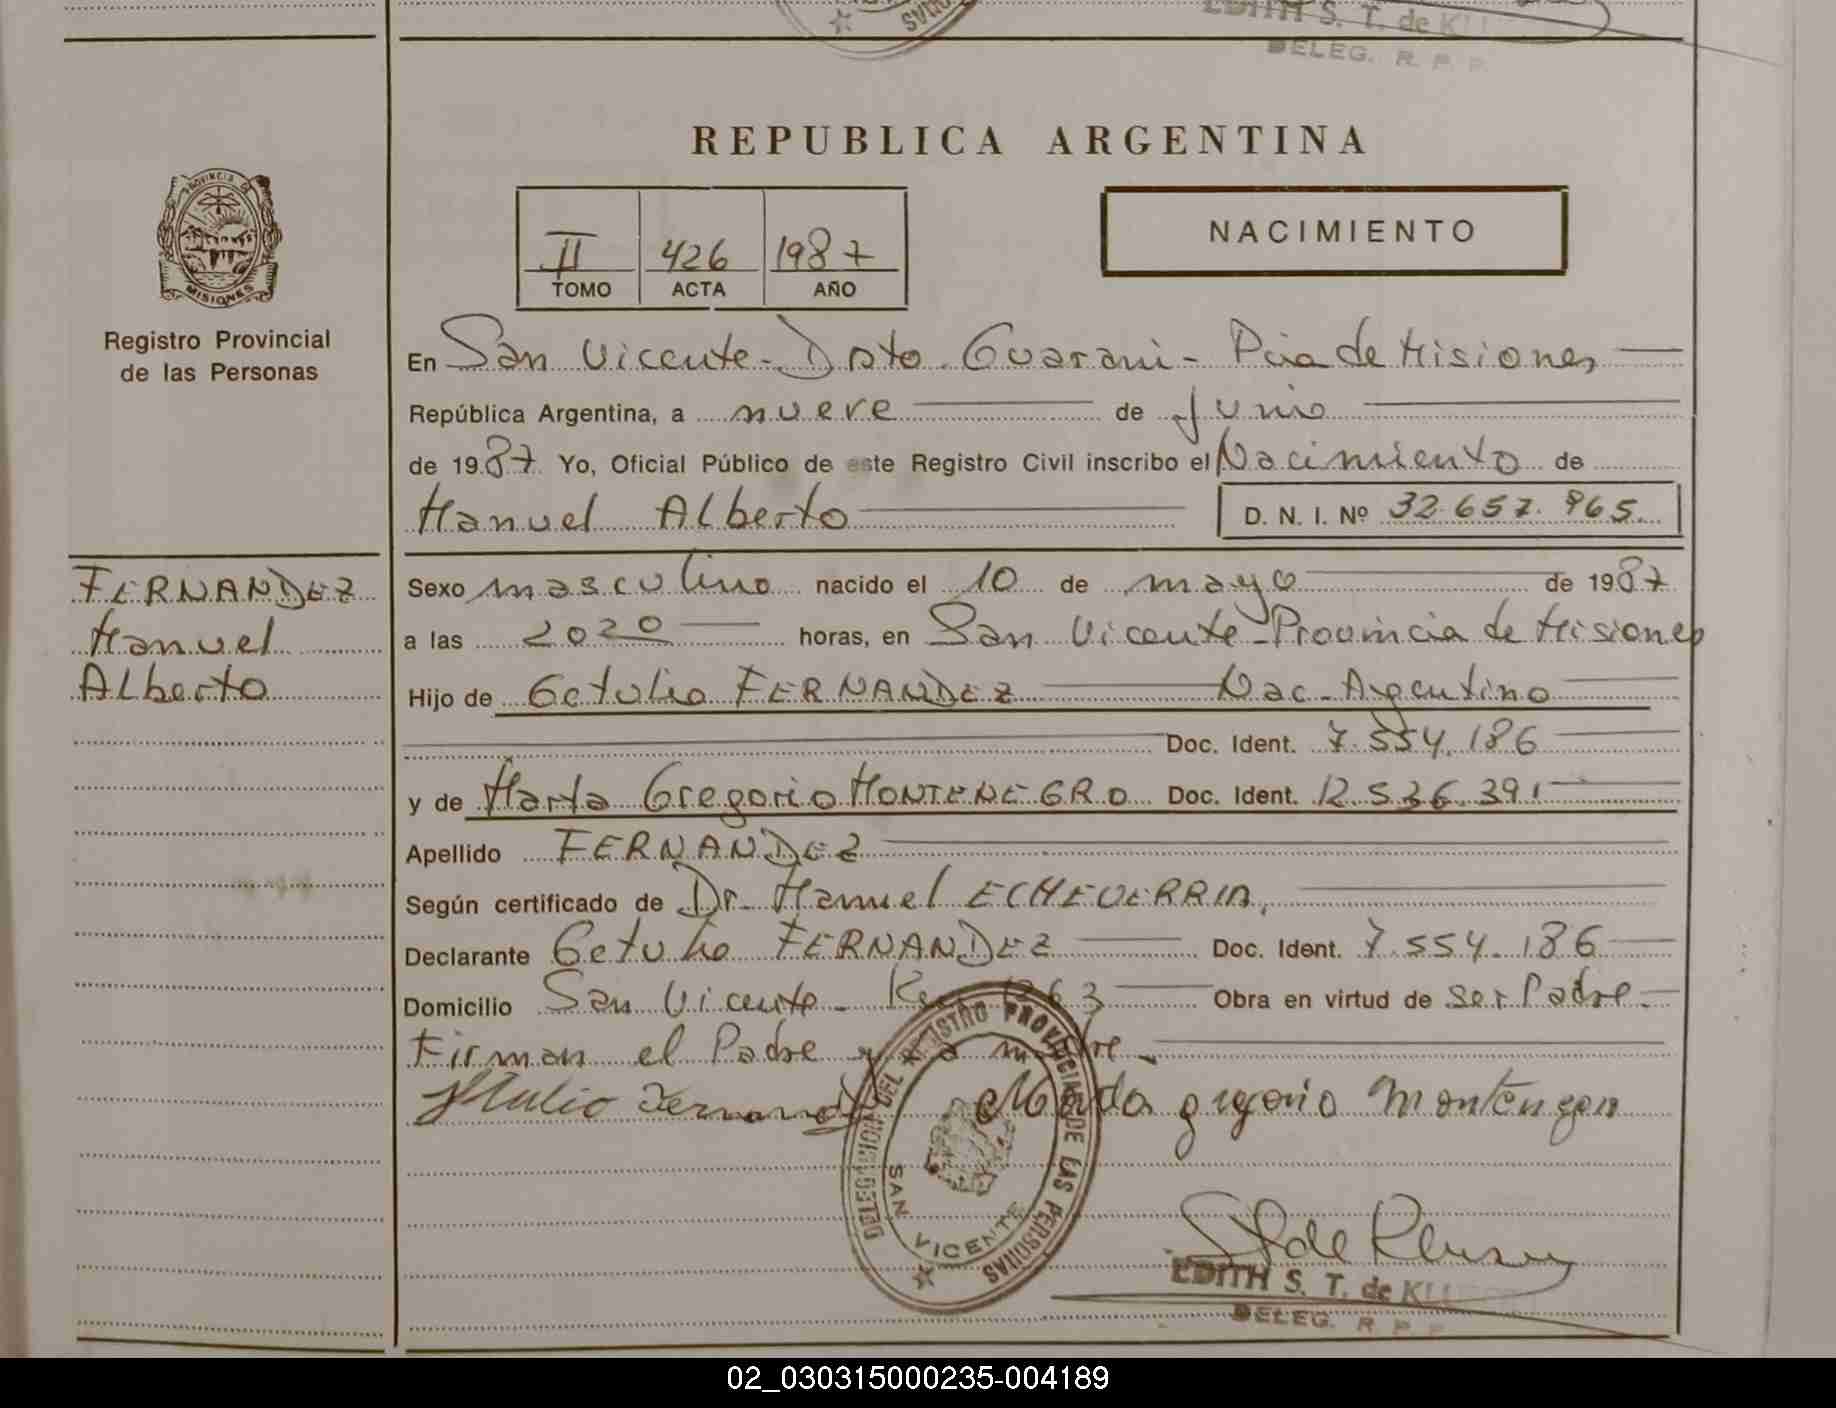 EDITH S. T. de
DELEG. R. P. P.
REPUBLICA ARGENTINA
PROVINCIA DE
MISIONES
Registro Provincial
de las Personas
II 426 1987
TOMO ACTA AÑO
NACIMIENTO
En San Vicente - Dpto. Guarani - Pcia de Misiones
República Argentina, a nueve de Junio
de 1987 Yo, Oficial Público de este Registro Civil inscribo el Nacimiento de
Manuel Alberto D. N. I. Nº 32.657.965.
FERNANDEZ
Manuel
Alberto
Sexo masculino nacido el 10 de mayo de 1987
a las 2020 horas, en San Vicente - Provincia de Misiones
Hijo de Getulio FERNANDEZ Nac. Argentino
Doc. Ident. 7.554.186
y de Marta Gregorio MONTENEGRO Doc. Ident. 12.536.391
Apellido FERNANDEZ
Según certificado de Dr. Manuel ECHEVERRIA,
Declarante Getulio FERNANDEZ Doc. Ident. 7.554.186
Domicilio San Vicente - 1263 Obra en virtud de ser Padre.
Firman el Padre y la madre.
Marta gregorio
DELEGACION DEL REGISTRO PROVINCIAL DE LAS PERSONAS
SAN VICENTE
EDITH S. T. de
DELEG. R. P. P.
02_030315000235-004189